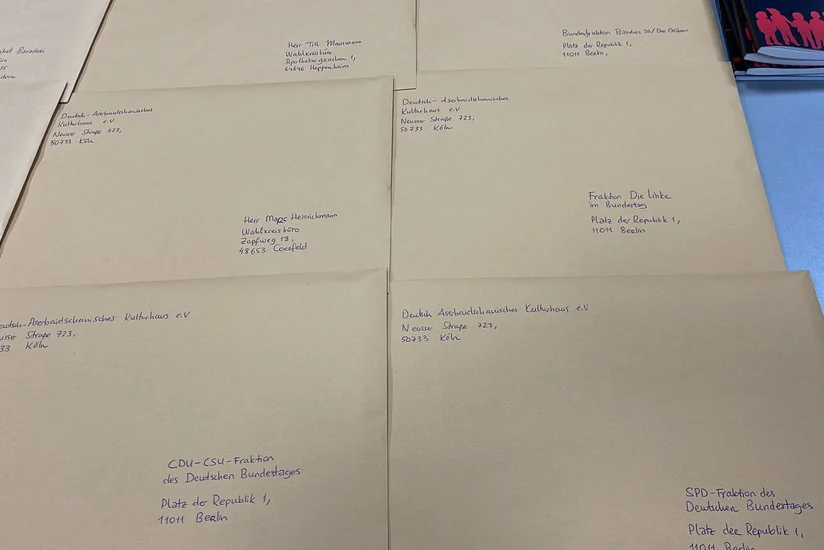 Herr Till Mansmann
Wahlkreisbüro
64646 Heppenheim
Bundesfraktion Bündnis 90/Die Grünen
Platz der Republik 1,
11011 Berlin,
Deutsch-Aserbaidschanisches
Kulturhaus e.V
Neusser Straße 723,
50733 Köln
Herr Marc Heinrichmann
Wahlkreisbüro
Zapfweg 18,
48653 Coesfeld
Deutsch-Aserbaidschanisches
Kulturhaus e.V
Neusser Straße 723,
50733 Köln
Fraktion Die Linke
im Bundestag
Platz der Republik 1,
11011 Berlin
eutsch-Aserbaidschanisches Kulturhaus e.V
usser Straße 723,
33 Köln
CDU-CSU-Fraktion
des Deutschen Bundestages
Platz der Republik 1,
11011 Berlin
Deutsch Aserbaidschanisches Kulturhaus e.V
Neusser Straße 723,
50733 Köln
SPD-Fraktion des
Deutschen Bundestages
Platz der Republik 1,
11011 Berlin